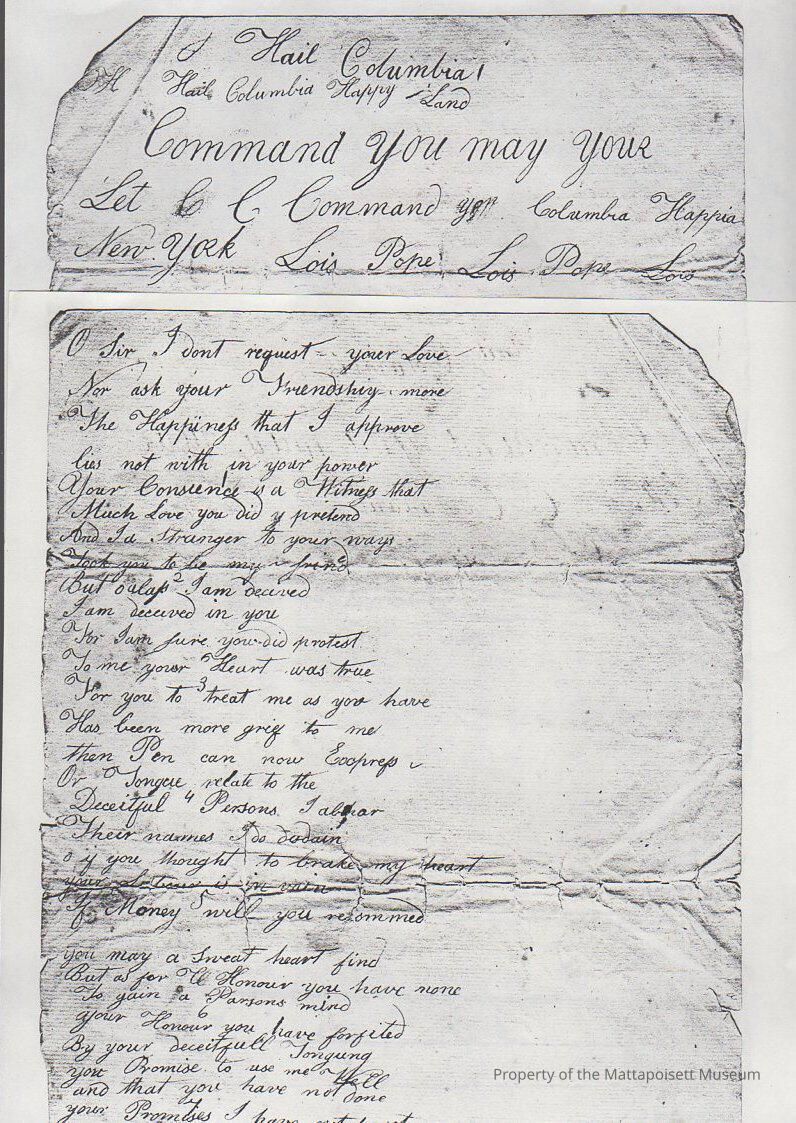 Hail Columbia!
Hail Columbia Happy Land
Command You may Your
Let C C Command Columbia Happia
New York Lois Pope Lois Pope Lois
O Sir I dont request your Love
Nor ask your Friendship more
The Happiness that I approve
lies not with in your power
Your Conscience is a Witness that
Much Love you did pretend
And I a Stranger to your ways
Took you to be my frind
But o alas 2 I am decived
I am deceved in you
For I am sure you did protest
To me your Heart was true
For you to 3 treat me as you have
Has been more grief to me
then Pen can now Exopress
Or Tongue relate to the
Deceitful 4 Persons I abhar
Their names I do
o if you thought to brake my heart
your is in vain
If Money 5 will you recommed
you may a Sweat heart find
But as for Honour you have none
To gain a Parsons mind
your Honour 6 you have forfited
By your deceitfull Tongung
you Promise to use me Well
and that you have not done
your Promises I have
Property of the Mattapoisett Museum